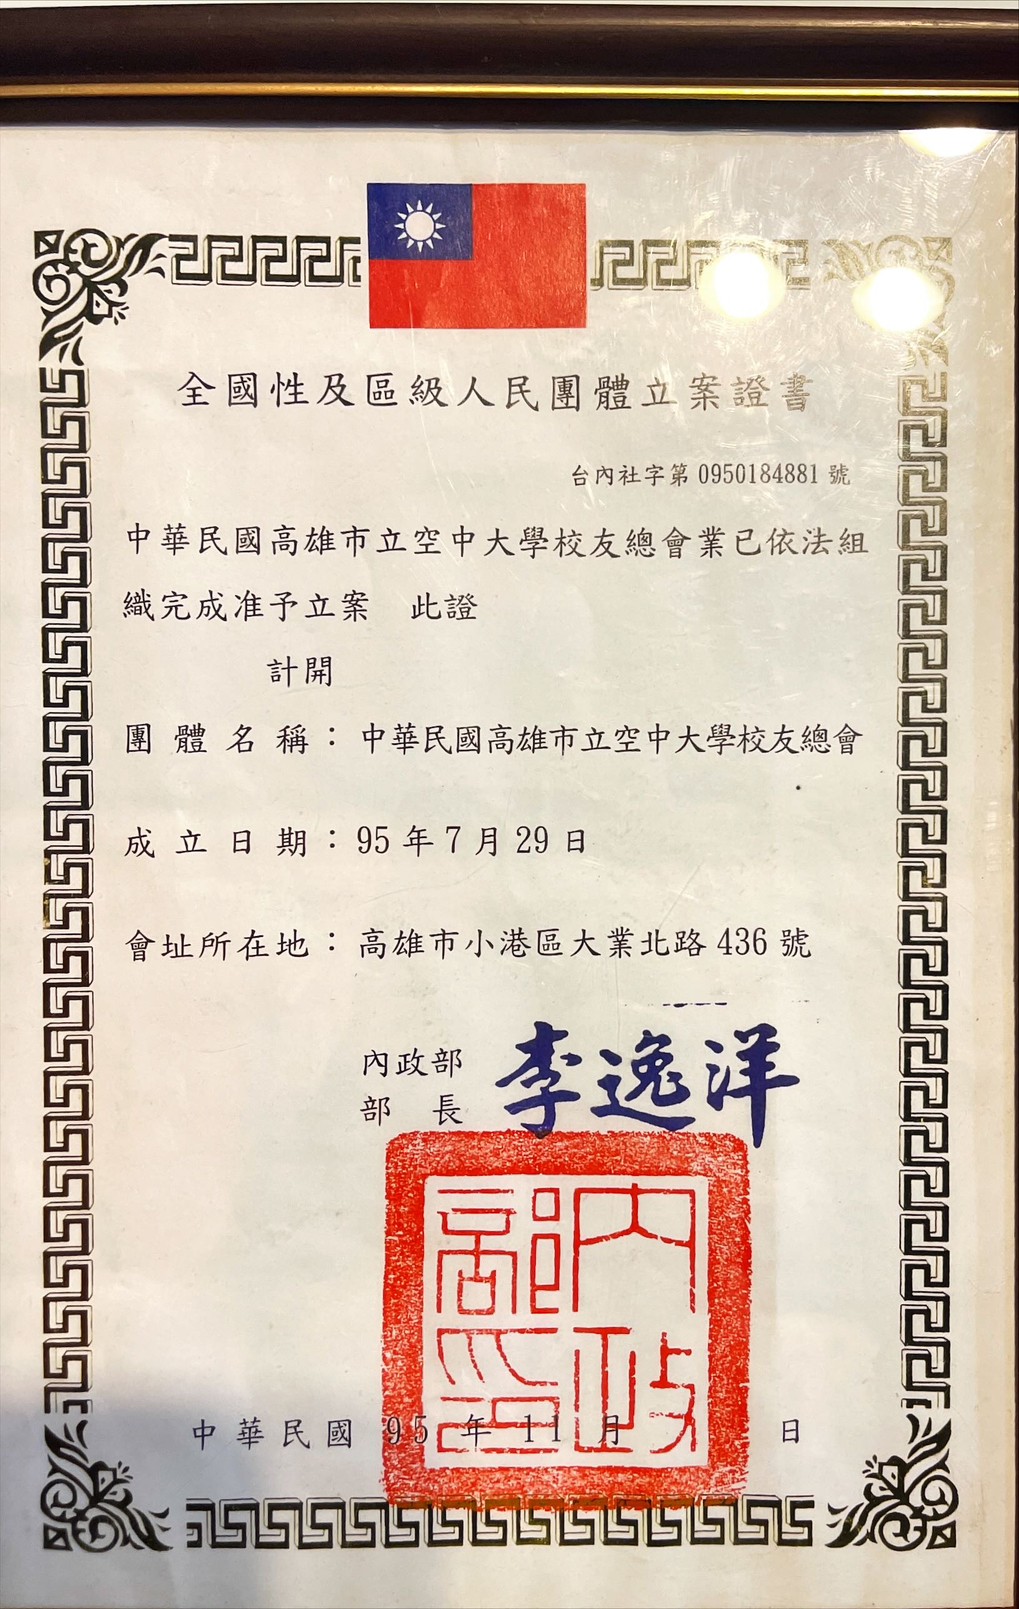 全國性及區級人民團體立案證書
台內社字第 0950184881 號
中華民國高雄市立空中大學校友總會業已依法組
織完成准予立案 此證
計開
團體名稱：中華民國高雄市立空中大學校友總會
成立日期：95 年 7 月 29 日
會址所在地：高雄市小港區大業北路 436 號
內政部
部長 李逸洋
內政部印
中華民國 95 年 11 月 日